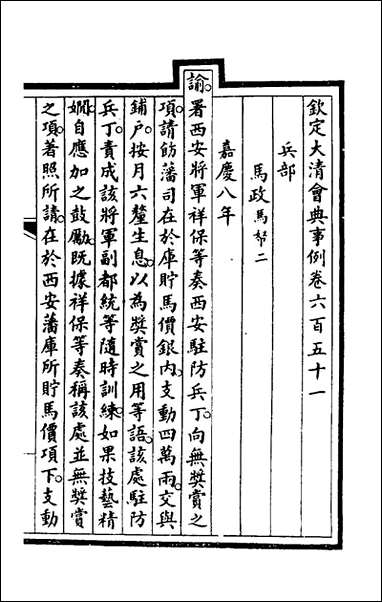 欽定大清會典事例卷六百五十一
兵部
馬政馬幣二
嘉慶八年
諭署西安將軍祥保等奏西安駐防兵丁向無奬賞之
項請飭藩司在於庫貯馬價銀内支動四萬兩交與
鋪戸按月六釐生息以為奬賞之用等語該處駐防
兵丁責成該將軍副都統等隨時訓練如果技藝精
嫺自應加之鼓勵既據祥保等奏稱該處並無奬賞
之項著照所請在於西安藩庫所貯馬價項下支動